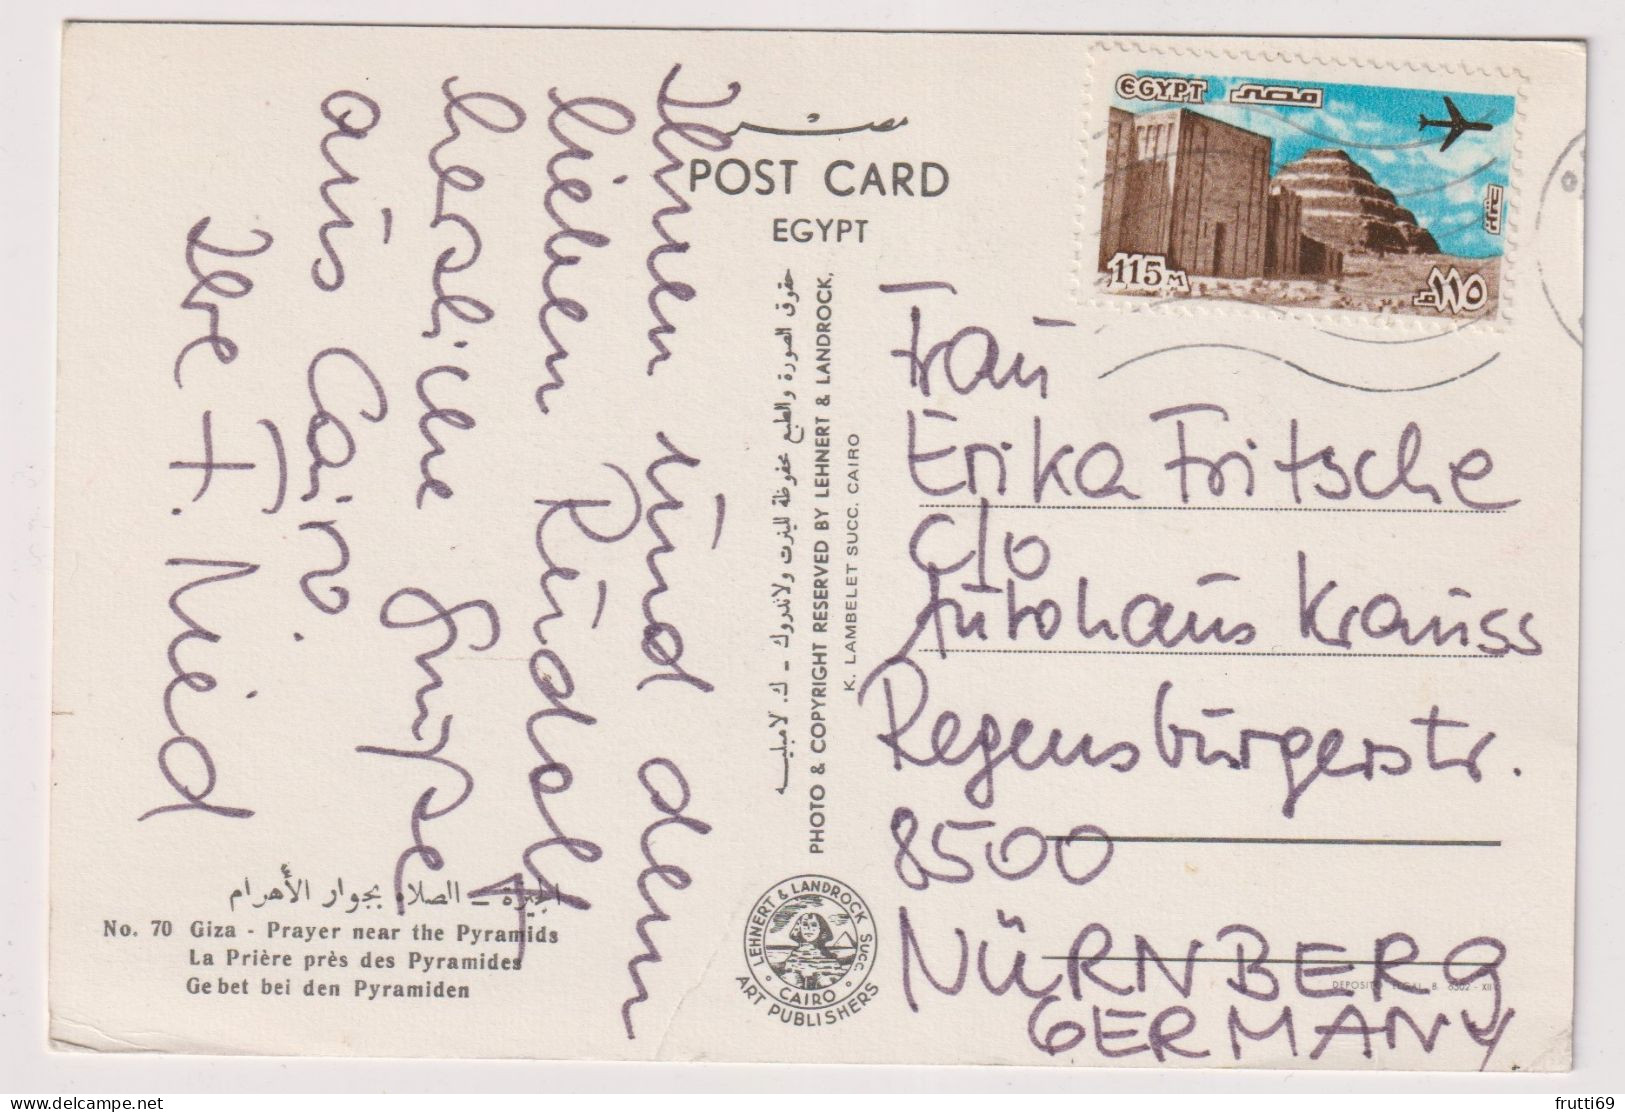 Ihnen und dem
lieben Rudolf
herzliche Grüße
aus Cairo.
Ihre F. Nied
مصر
POST CARD
EGYPT
حقوق الصورة والطبع محفوظة للينرت ولاندروك - ك. لامبليه
PHOTO & COPYRIGHT RESERVED BY LEHNERT & LANDROCK,
K. LAMBELET SUCC. CAIRO
EGYPT مصر
115 M
١١٥ م
Frau
Erika Fritsche
c/o
Autohaus Krauss
Regensburgerstr.
8500
NÜRNBERG
GERMANY
الجيزة - الصلاة بجوار الأهرام
No. 70 Giza - Prayer near the Pyramids
La Prière près des Pyramides
Gebet bei den Pyramiden
LEHNERT & LANDROCK SUCC.
CAIRO
ART PUBLISHERS
frutti69